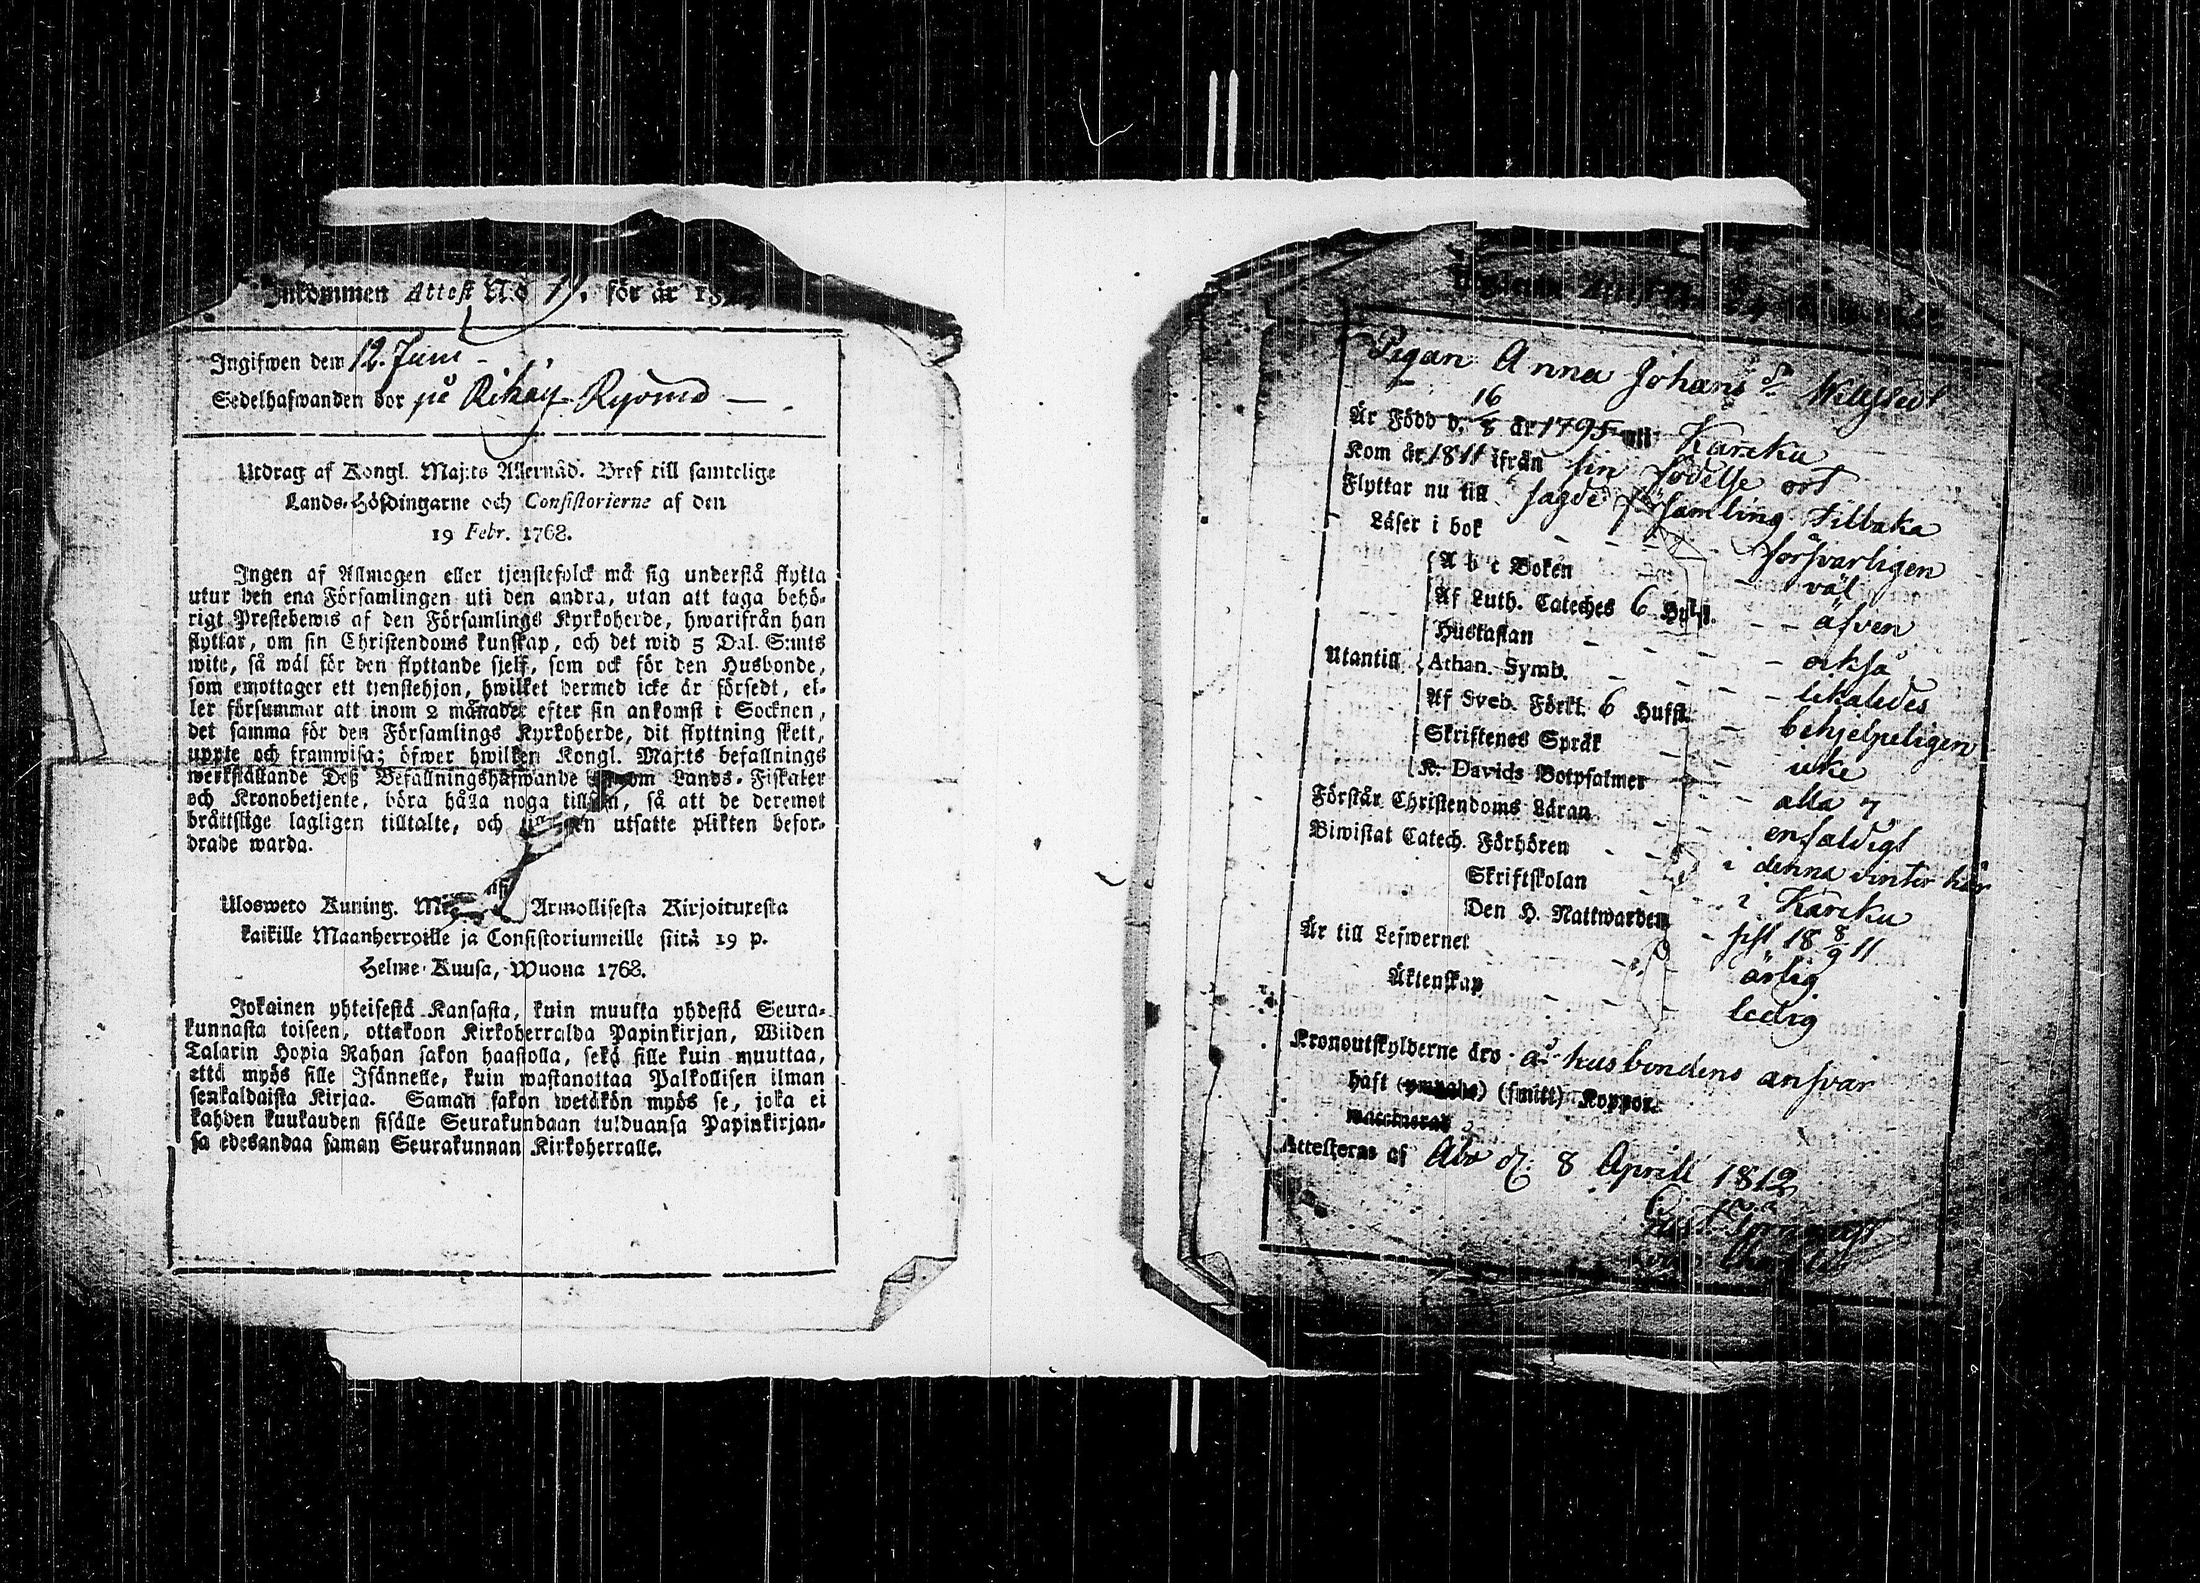 Inkommen Attest N:o för år
Ingifwen dem 12. Juni
Sedelhafwanden bor på
Utdrag af Kongl. Maj:ts Allernåd. Bref till samtelige
Lands-Höfdingarne och Consistorierne af den
19 Febr. 1768.
Ingen af Allmogen eller tjenstefolck må sig understå flytta
utur den ena Församlingen uti den andra, utan att taga behö-
rigt Prestebewis af den Församlings Kyrkoherde, hwarifrån han
flyttar, om sin Christendoms kunskap, och det wid 5 Dal. S:mts
wite, så wäl för den flyttande sjelf, som ock för den Husbonde,
som emottager ett tjenstehjon, hwilket dermed icke är försedt, el-
ler försummar att inom 2 månader efter sin ankomst i Socknen,
det samma för den Församlings Kyrkoherde, dit flyttning skett,
uppte och framwisa; öfwer hwilken Kongl. Maj:ts befallnings
werkställande Deß Befallningshafwande om Lands-Fiskaler
och Kronobetjente, böra hålla noga tillsyn, så att de deremot
bråttslige lagligen tilltalte, och utsatte plikten befor-
drade warda.
Ulosweto Kuning. Armollisesta Kirjoituxesta
kaikille Maanherroille ja Consistoriumeille siitä 19 p.
Helme-Kuusa, Wuona 1768.
Jokainen yhteisestä Kansasta, kuin muutta yhdestä Seura-
kunnasta toiseen, ottakoon Kirkoherralda Papinkirjan, Wiiden
Talarin Hopia Rahan sakon haastolla, sekä sille kuin muuttaa,
että myös sille Isännelle, kuin wastanottaa Palkollisen ilman
senkaldaista Kirjaa. Saman sakon wetäkön myös se, joka ei
kahden kuukauden sisälle Seurakundaan tulduansa Papinkirjan-
sa edesandaa saman Seurakunnan Kirkoherralle.
Pigan Anna Johans dr
Är Född d. 16/8 år 1795 uti Karcku
Kom år 1811 ifrån sin födelse ort
Flyttar nu till sagde församling tillbaka
Läser i bok - - - - försvarligen
A b c Boken - väl
Af Luth. Cateches 6 Hufst. - - äfven
Hustaflan - - - - också
Utantill Athan. Symb. - - - - likaledes
Af Sveb. Förkl. 6 Hufst. - behjelpeligen
Skriftenes Språk - - - icke
K. Davids Botpsalmer - - alla 7
Förstår Christendoms Läran - - enfaldigt
Biwistat Catech. Förhören - - i denna vinter här
Skriftskolan - - i Karcku
Den H. Nattwarden - sist 18 8/9 11
Är till Lefwernet - - ärlig
Äktenskap - - - ledig
Kronoutskylderne äro å husbondens ansvar
haft (ympade) (smitt) Koppor.
waccinerad
Attesteras af Åbo d. 8 Aprill 1812